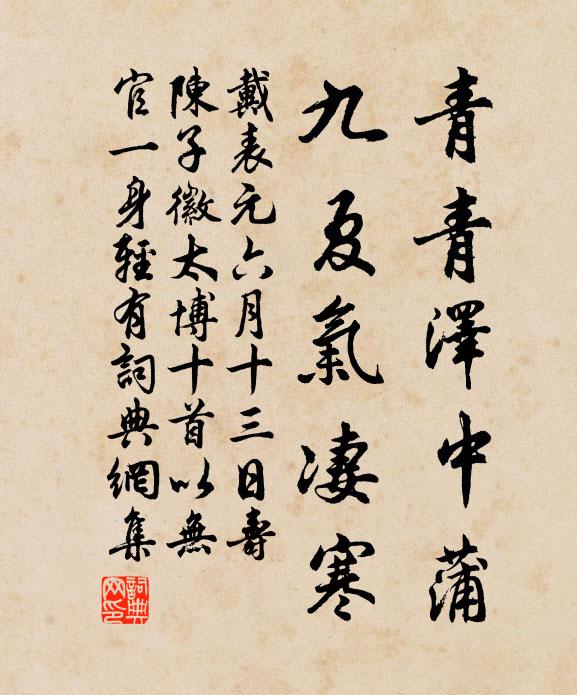 青青澤中蒲
九夏氣凄寒
戴表元六月十三日壽
陳子徽太博十首以無
官一身輕有詞典網集
詞典網印